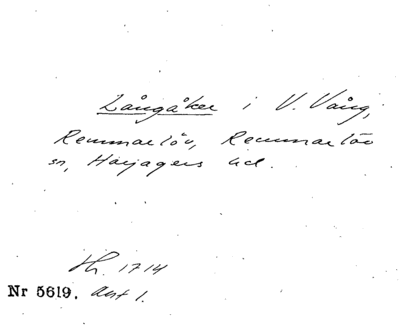 Långåker i V. Vång,
Remmarlöv, Remmarlöv
sn, Harjagers hd.
Hr. 1714
Nr 5619. Akt 1.